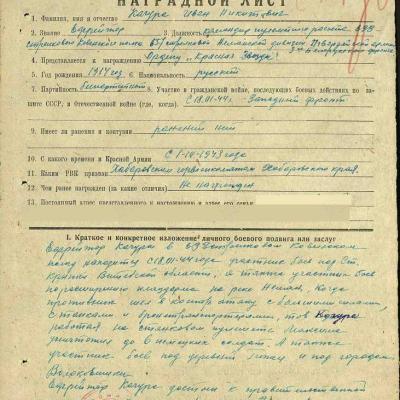 НАГРАДНОЙ ЛИСТ
1. Фамилия, имя и отчество Качура Иван Никитович
2. Звание Ефрейтор 3. Должность командир пулеметного расчета 693
стрелкового Ковенского полка 85 стрелковой дивизии
4. Представляется к награждению Ордену „Красная Звезда“
5. Год рождения 1914 год 6. Национальность русский
7. Партийность беспартийный 8. Участие в гражданской войне, последующих боевых действиях по за-
щите СССР, и Отечественной войне (где, когда). С 18.01-44 г. Западный фронт
9. Имеет ли ранения и контузии ранений нет
10. С какого времени в Красной Армии С 1943 года
11. Каким РВК призван Хабаровским горвоенкоматом Хабаровского края.
12. Чем ранее награжден (за какие отличия) Не награжден
13. Постоянный адрес представляемого к награждению и адрес его семьи
I. Краткое и конкретное изложение личного боевого подвига или заслуг
Ефрейтор Качура в стрелковом Ковенском
полку находится с 18.01-44 года участник боев под ст.
Витебской области, а также участник боев
по расширению плацдарма на реке Неман, когда
противник шел в контр атаку с большими силами,
с танками и бронетранспортерами, тов Качура
работая на станковом пулемете Максима
уничтожил до 8 немецких солдат. А также
участник боев под деревней и под городом
Волковышки.
Ефрейтор Качура достоин к правительственной